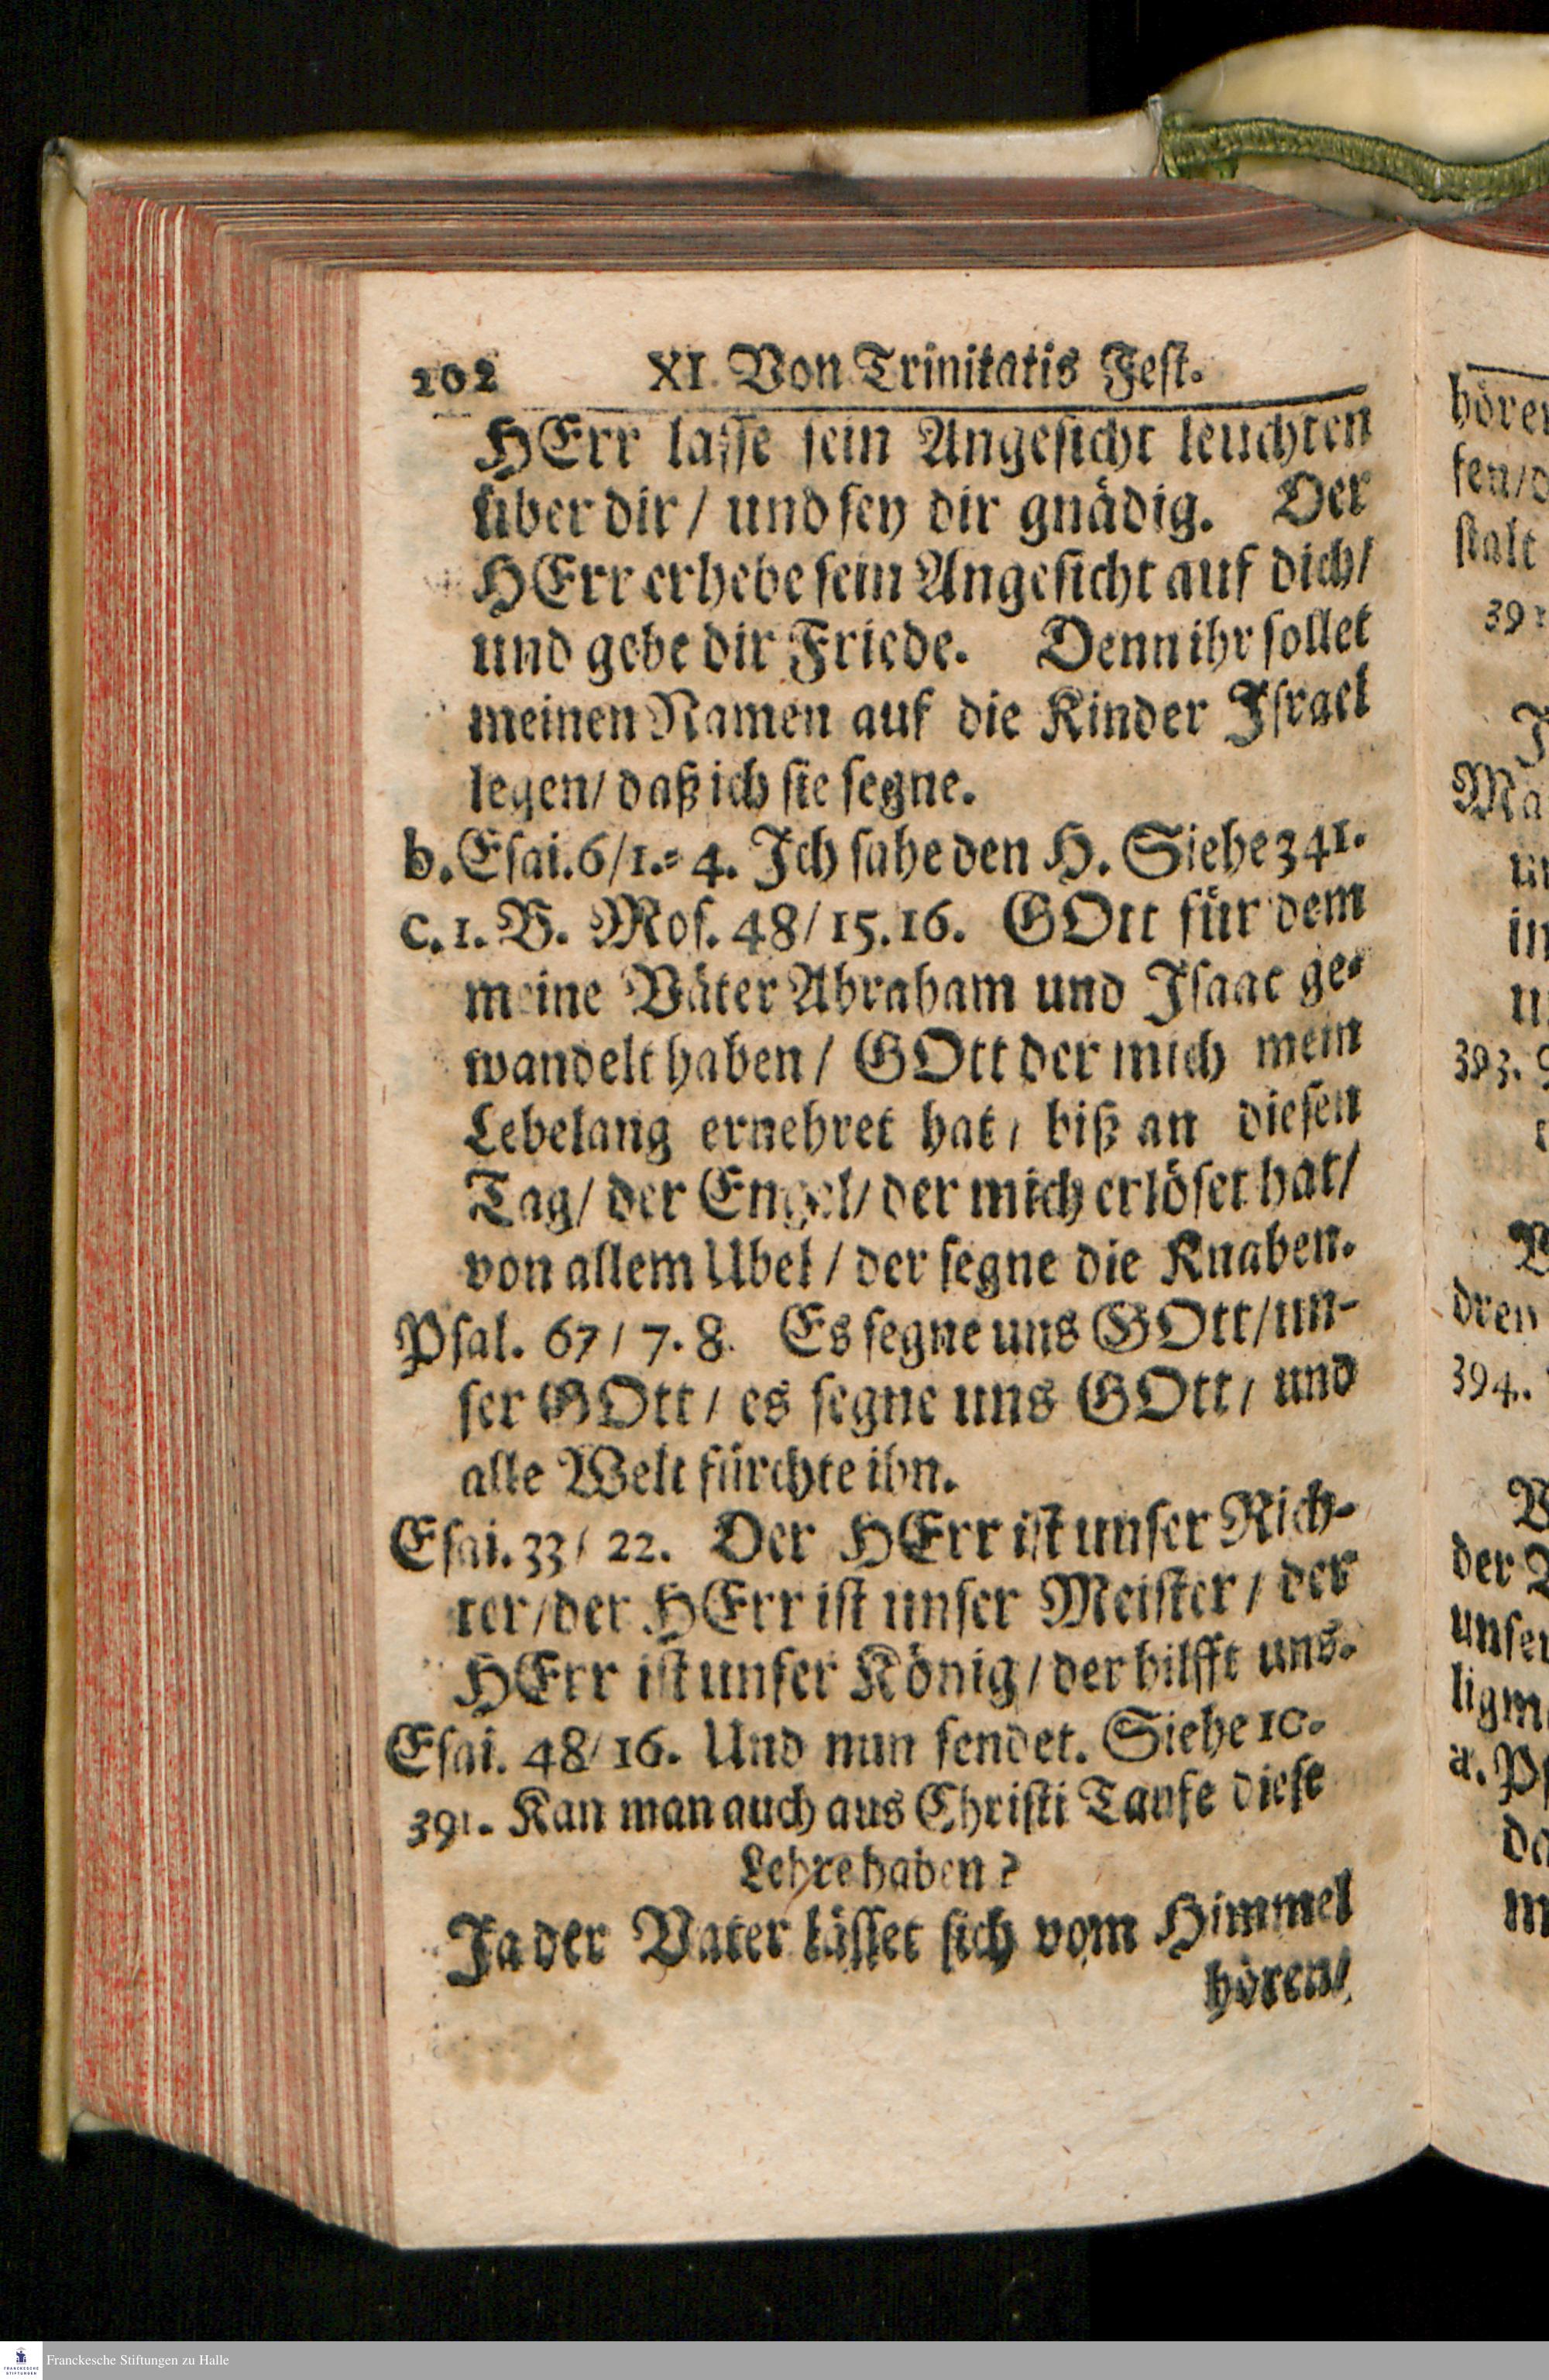 202 XI. Von Trinitatis Fest.
HErr lasse sein Angesicht leuchten
über dir / und sey dir gnädig. Der
HErr erhebe sein Angesicht auf dich/
und gebe dir Friede. Denn ihr sollet
meinen Namen auf die Kinder Israel
legen/ daß ich sie segne.
b. Esai. 6/1.-4. Ich sahe den H. Siehe 341.
c. 1. B. Mos. 48/15.16. GOtt für dem
meine Väter Abraham und Isaac ge-
wandelt haben / GOtt der mich mein
Lebelang ernehret hat / biß an diesen
Tag/ der Engel/ der mich erlöset hat/
von allem Ubel / der segne die Knaben.
Psal. 67/7.8. Es segne uns GOtt/ un-
ser GOtt / es segne uns GOtt / und
alle Welt fürchte ihn.
Esai. 33/22. Der HErr ist unser Rich-
ter/ der HErr ist unser Meister / der
HErr ist unser König / der hilfft uns.
Esai. 48/16. Und nun sendet. Siehe 10.
391. Kan man auch aus Christi Taufe diese
Lehre haben?
Ja der Vater lässet sich vom Himmel
hören/
hören
sen/
stalt
39
Ma
in
393.
dren
394.
der
unser
ligm
a. Ps
da
Franckesche Stiftungen zu Halle
FRANCKESCHE
STIFTUNGEN